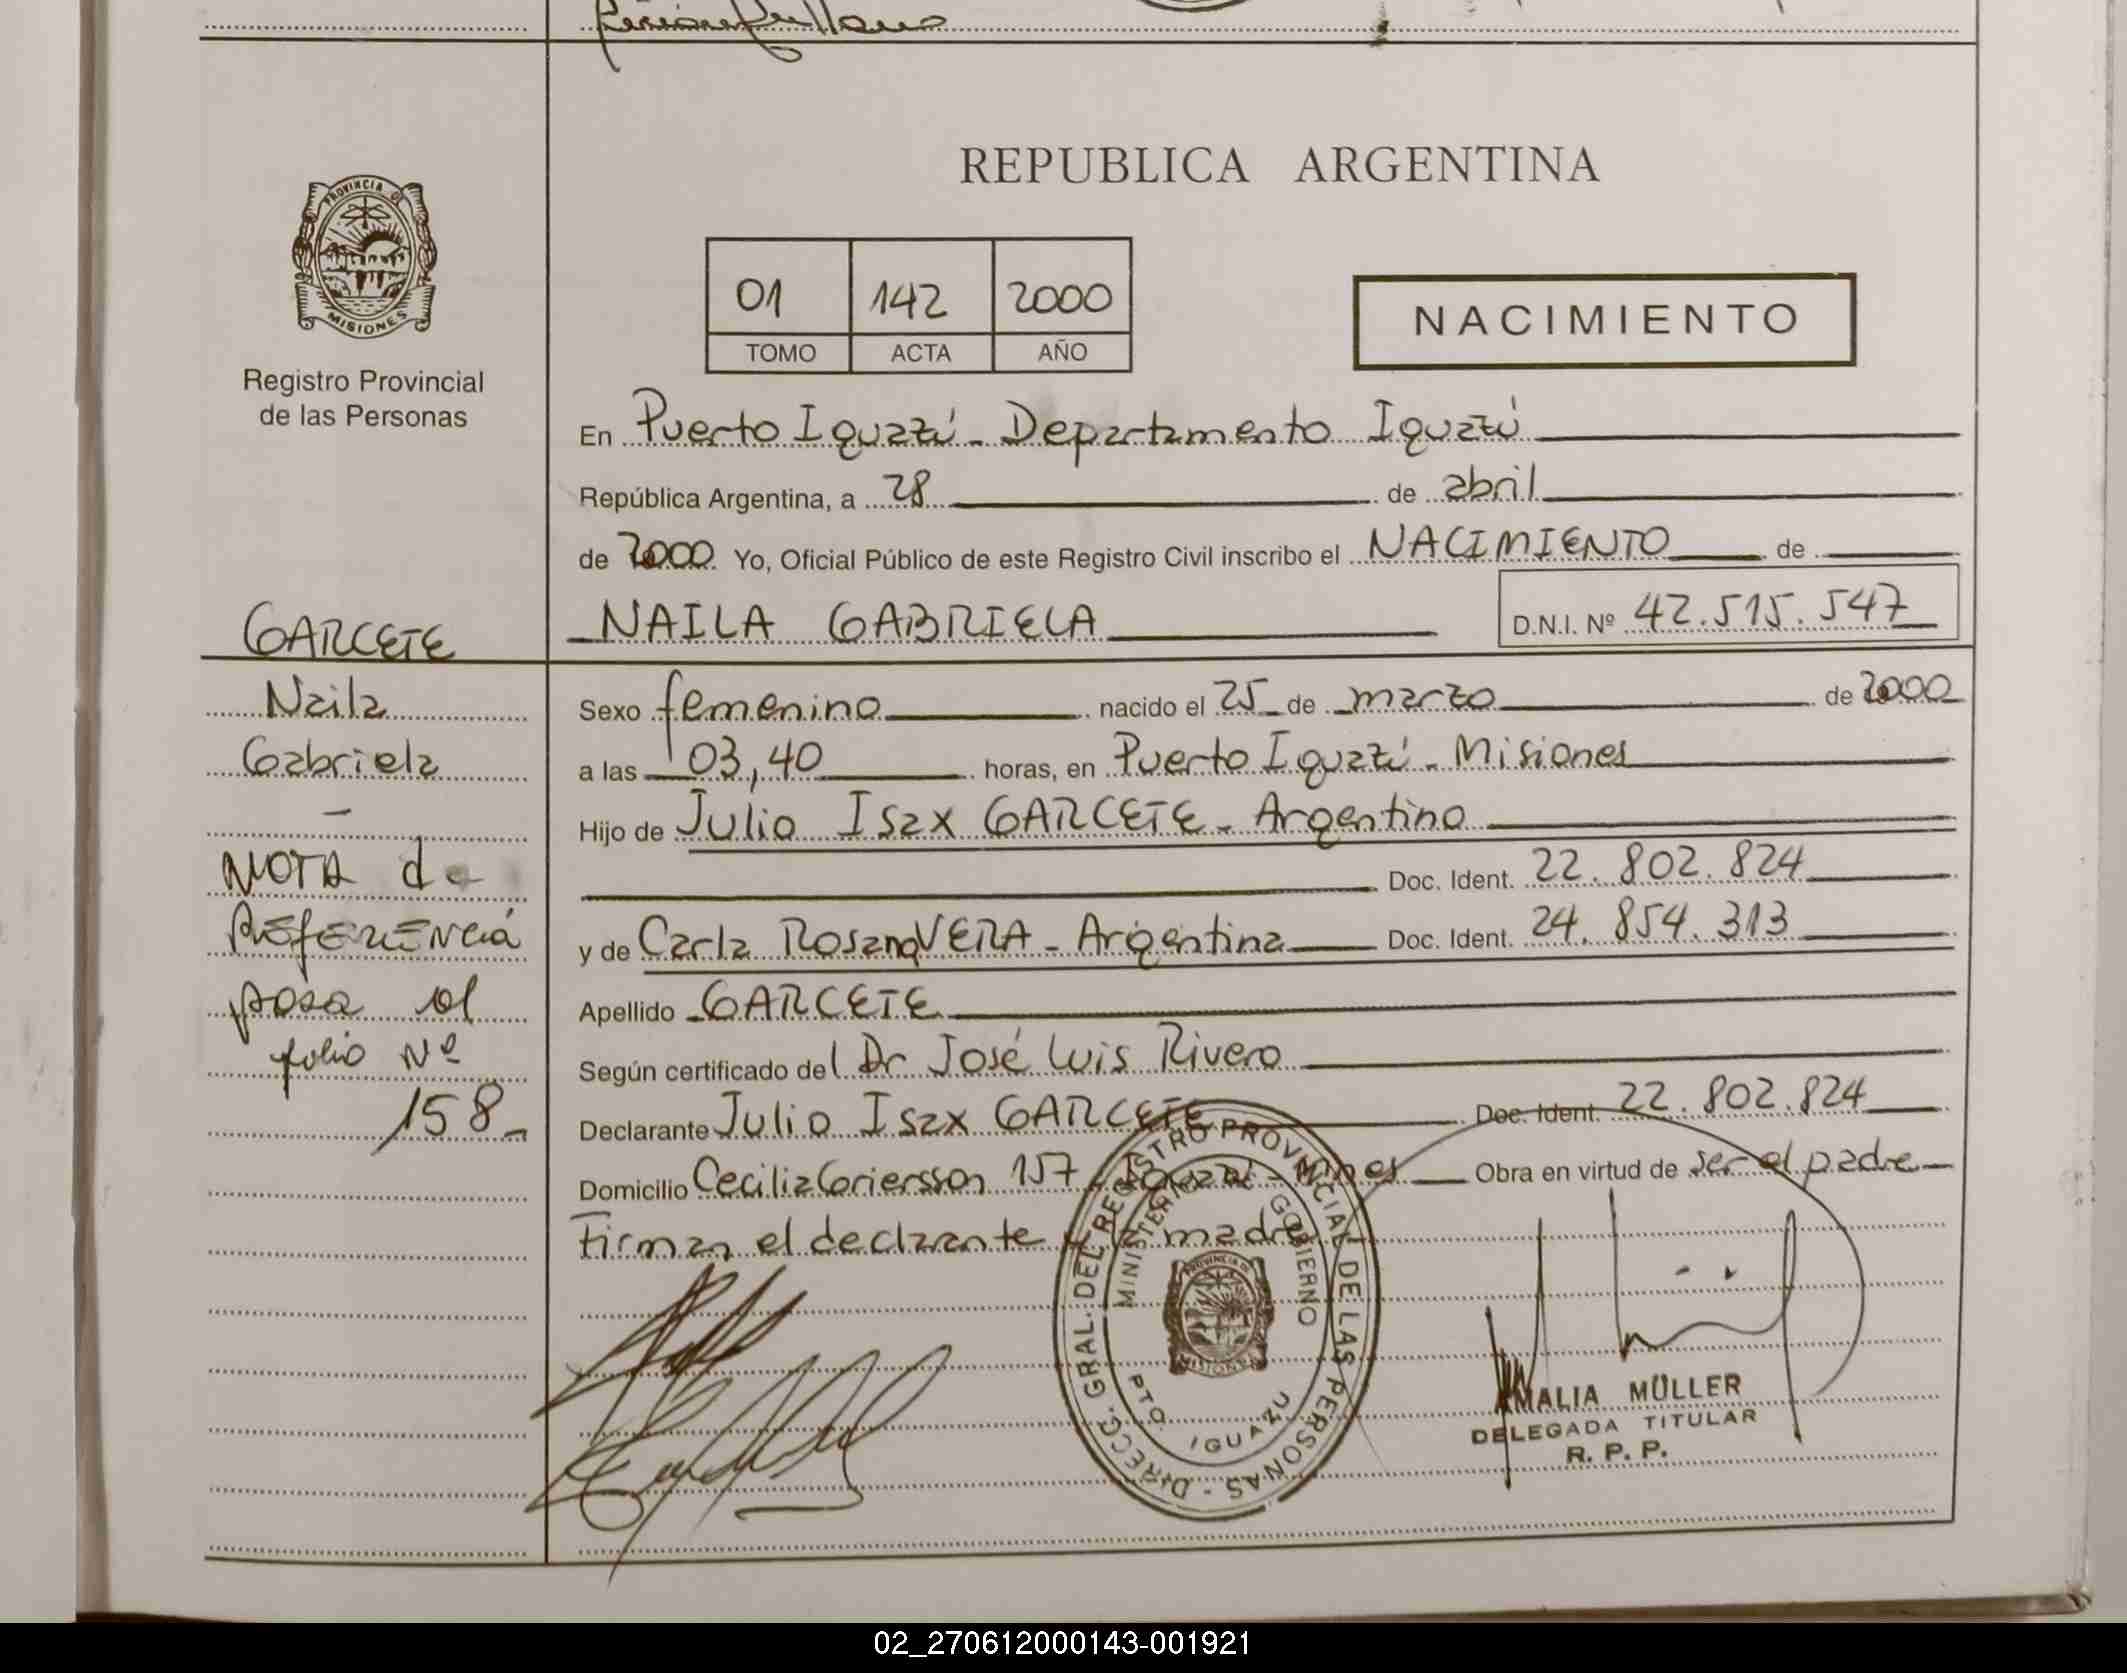 REPUBLICA ARGENTINA
PROVINCIA DE
MISIONES
Registro Provincial
de las Personas
01 142 2000
TOMO ACTA AÑO
NACIMIENTO
En Puerto Iguazú - Departamento Iguazú
República Argentina, a 28 de abril
de 2000 Yo, Oficial Público de este Registro Civil inscribo el NACIMIENTO de
NAILA GABRIELA D.N.I. Nº 42.515.547
GARCETE
Naila
Gabriela
-
NOTA de
REfERENCIA
pasa al
folio Nº
158-
Sexo femenino nacido el 25 de marzo de 2000
a las 03,40 horas, en Puerto Iguazú - Misiones
Hijo de Julio Isax GARCETE - Argentino
Doc. Ident. 22.802.824
y de Carla Rosana VERA - Argentina Doc. Ident. 24.854.313
Apellido GARCETE
Según certificado del Dr José Luis Rivero
Declarante Julio Isax GARCETE Doc. Ident. 22.802.824
Domicilio Cecilia Griersson 157 - Iguazú - Mnes Obra en virtud de ser el padre
Firman el declarante y la madre
DIRECC. GRAL. DEL REGISTRO PROVINCIAL DE LAS PERSONAS -
MINISTERIO DE GOBIERNO
PTO. IGUAZU
MISIONES
AMALIA MÜLLER
DELEGADA TITULAR
R. P. P.
02_270612000143-001921